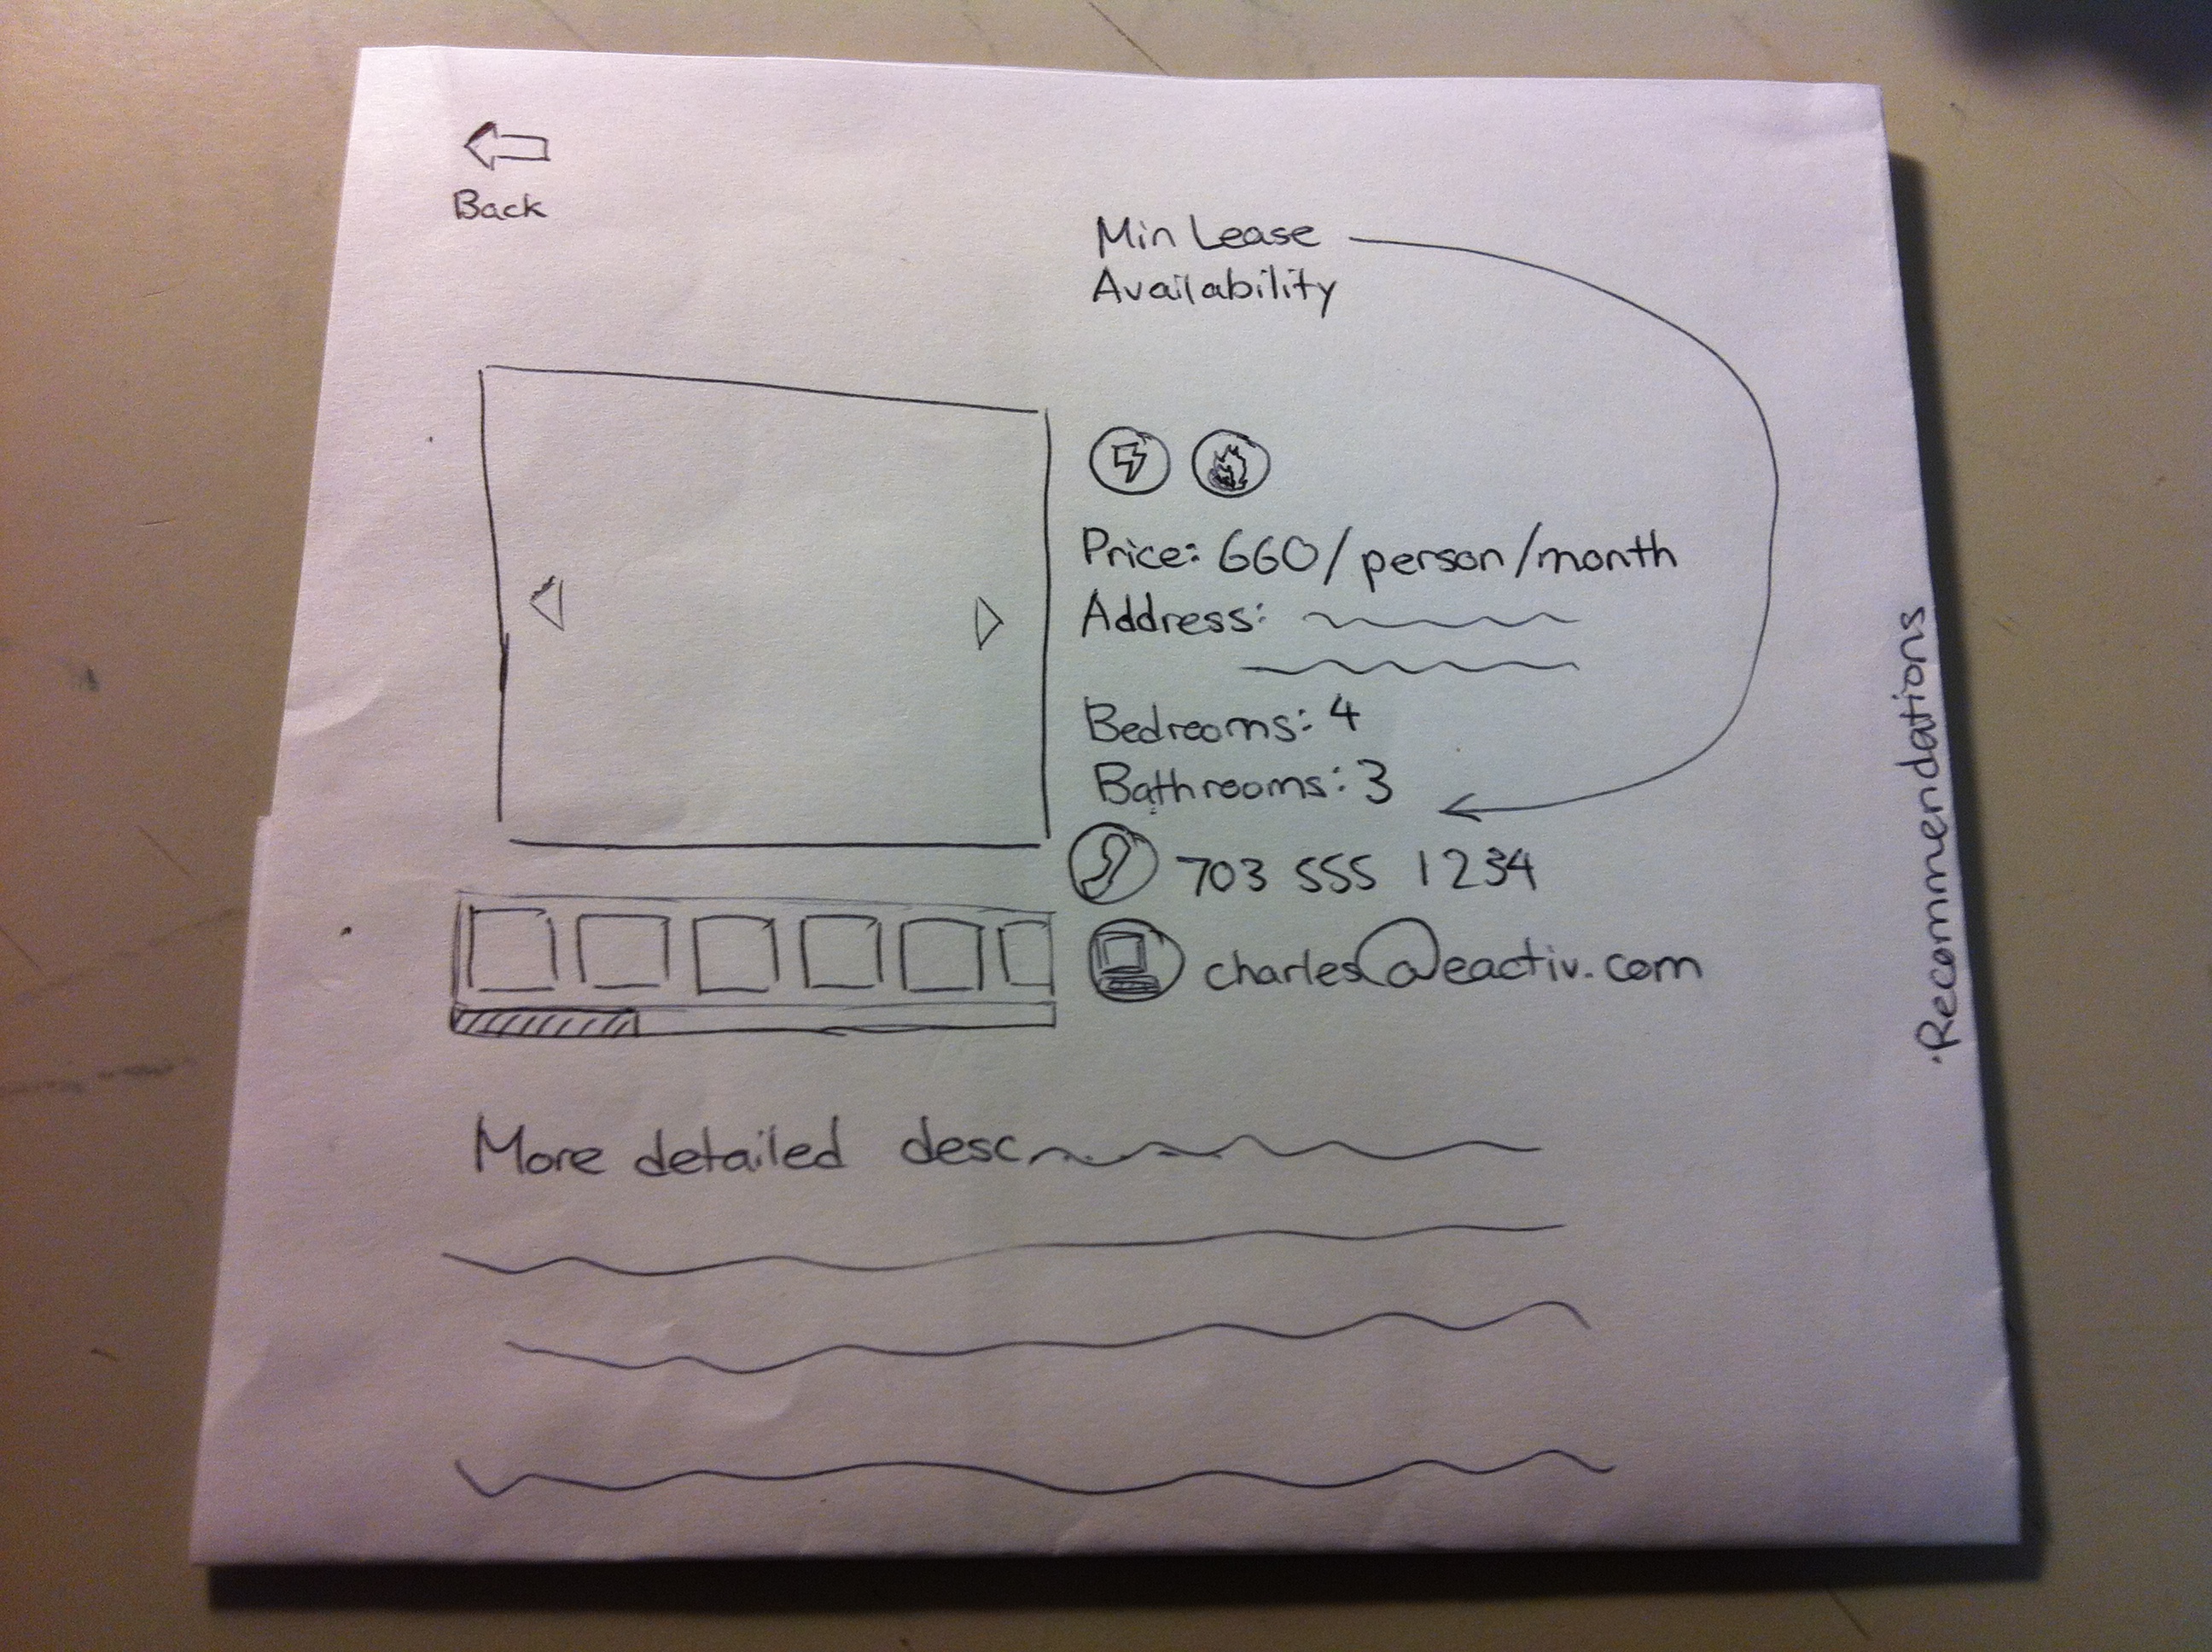 Back
Min Lease
Availability
Price: 660/person/month
Address:
Bedrooms: 4
Bathrooms: 3
703 555 1234
charles@eactiv.com
More detailed desc
Recommendations